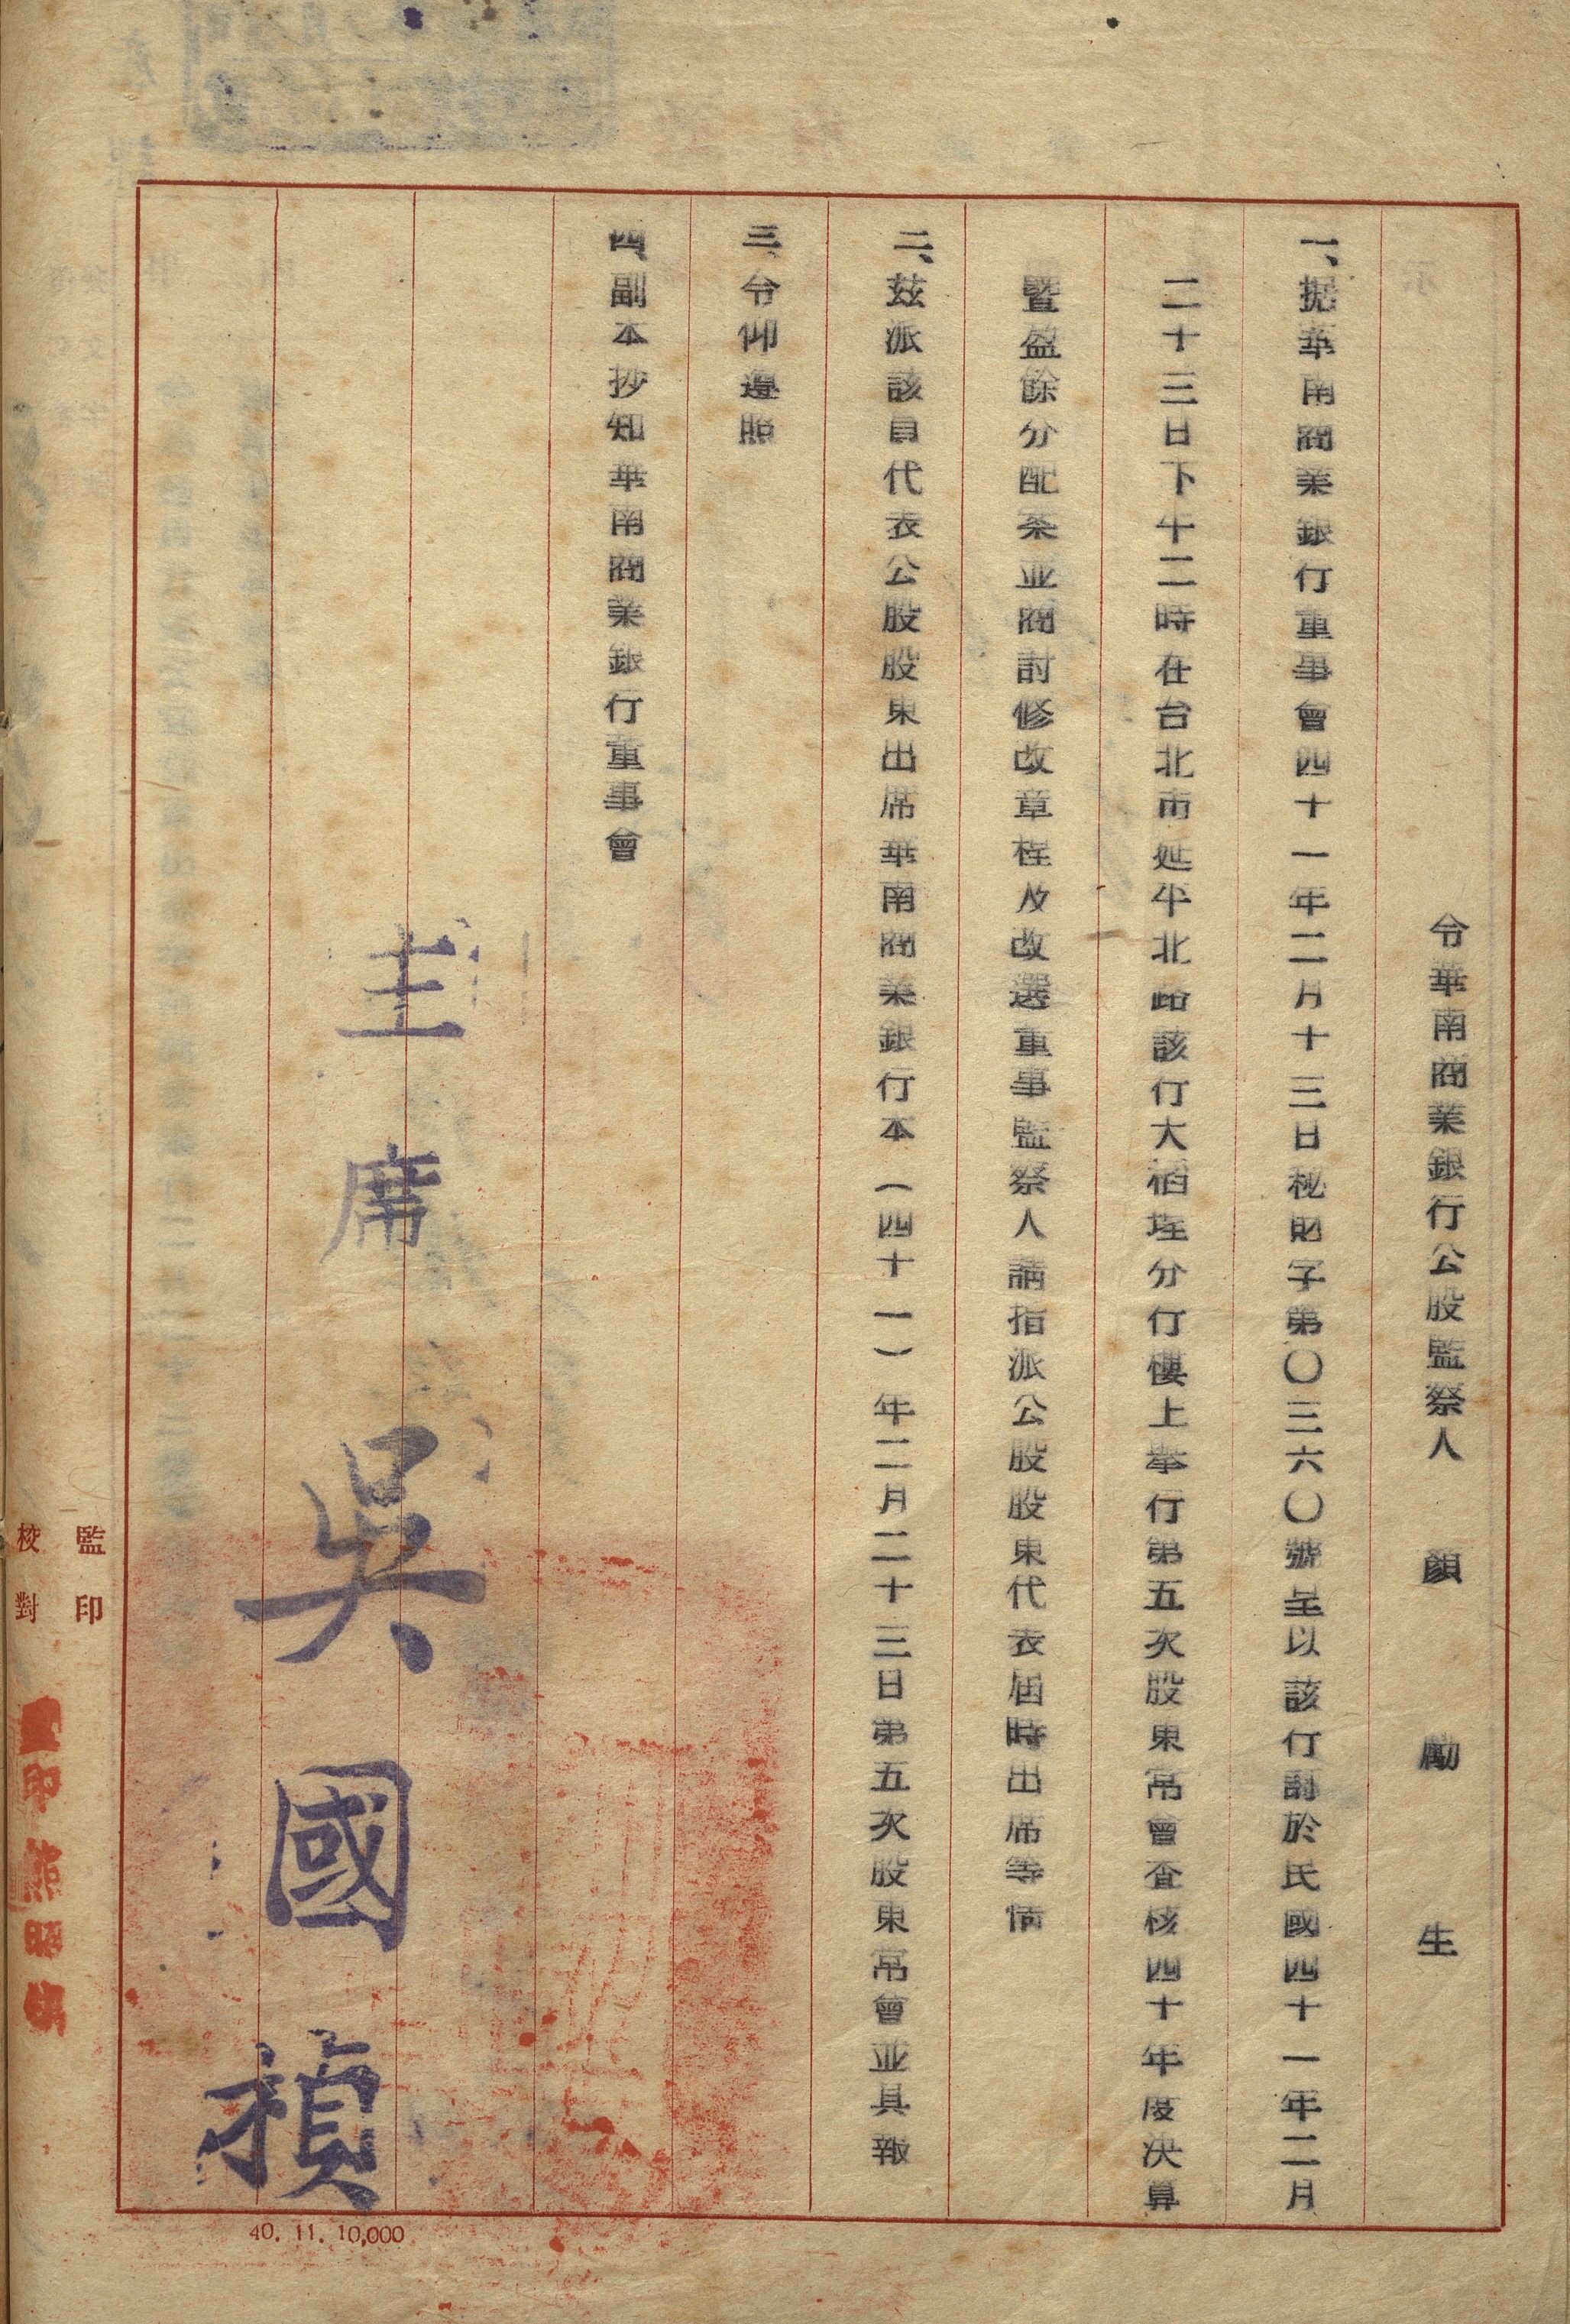 令華南商業銀行公股監察人　顏　勵　生
一、據華南商業銀行董事會四十一年二月十三日秘財字第〇三六〇號呈以該行訂於民國四十一年二月
二十三日下午二時在台北市延平北路該行大稻埕分行樓上舉行第五次股東常會查核四十年度決算
暨盈餘分配案並商討修改章程及改選董事監察人請指派公股股東代表屆時出席等情
二、茲派該員代表公股股東出席華南商業銀行本(四十一)年二月二十三日第五次股東常會並具報
三、令仰遵照
四、副本抄知華南商業銀行董事會
主席　吳國楨
監印
校對
40. 11. 10,000